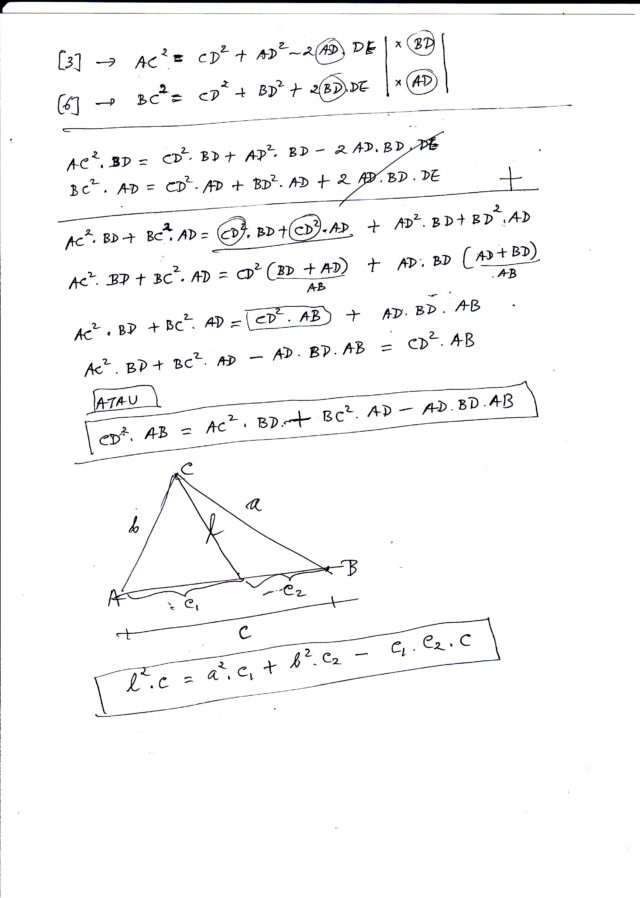 [3] → AC² = CD² + AD² - 2 AD. DE | × BD |
[6] → BC² = CD² + BD² + 2 BD. DE | × AD |
AC². BD = CD². BD + AD². BD - 2 AD. BD. DE
BC². AD = CD². AD + BD². AD + 2 AD. BD. DE +
AC². BD + BC². AD = CD². BD + CD². AD + AD². BD + BD². AD
AC². BD + BC². AD = CD² (BD + AD) + AD. BD (AD + BD)
AB AB
AC². BD + BC². AD = CD². AB + AD. BD. AB
AC². BD + BC². AD - AD. BD. AB = CD². AB
ATAU
CD². AB = AC². BD. + BC². AD - AD. BD. AB
C
b l a
A B
c₁ c₂
c
l². c = a². c₁ + b². c₂ - c₁. c₂. c